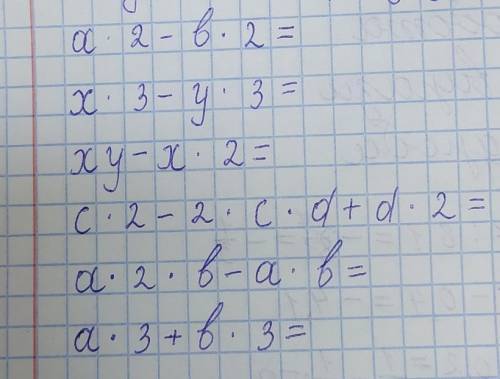 a · 2 - b · 2 =
x · 3 - y · 3 =
xy - x · 2 =
c · 2 - 2 · c · d + d · 2 =
a · 2 · b - a · b =
a · 3 + b · 3 =